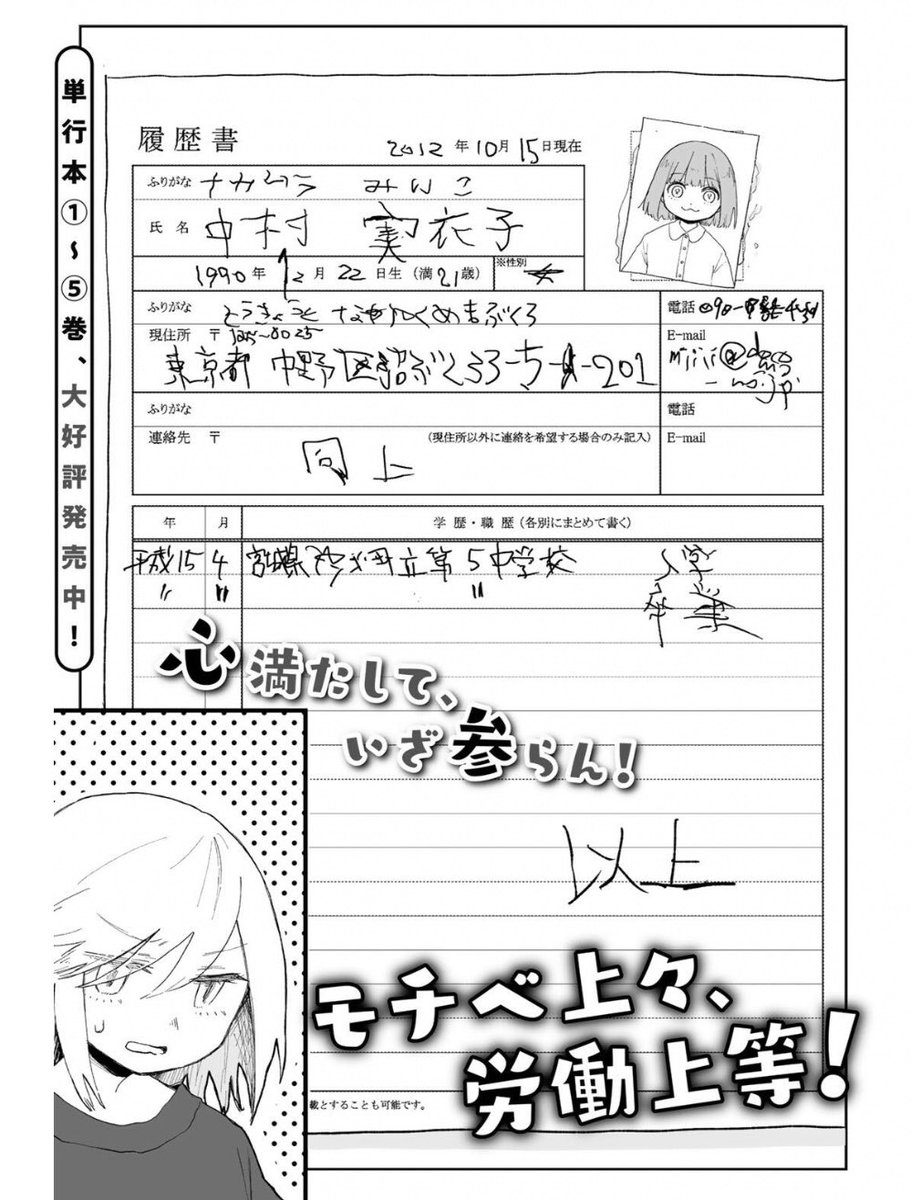 単行本①~⑤巻、大好評発売中!
履歴書
2012年10月15日現在
ふりがな ナカムラ みいこ
氏名 中村 実衣子
1990年12月22日生(満21歳)
※性別
ふりがな とうきょうと なかのくぬまぶくろ
電話 090-
現住所 〒
E-mail
東京都 中野区沼ぶくろ3-5-1-201
ふりがな
電話
連絡先 〒 (現住所以外に連絡を希望する場合のみ記入)
E-mail
同上
年 月 学歴・職歴(各別にまとめて書く)
平成15 4 宮城県 立第5中学校 入学
〃 〃 〃 卒業
心満たして、
いざ参らん!
以上
モチベ上々、
労働上等!
載とすることも可能です。